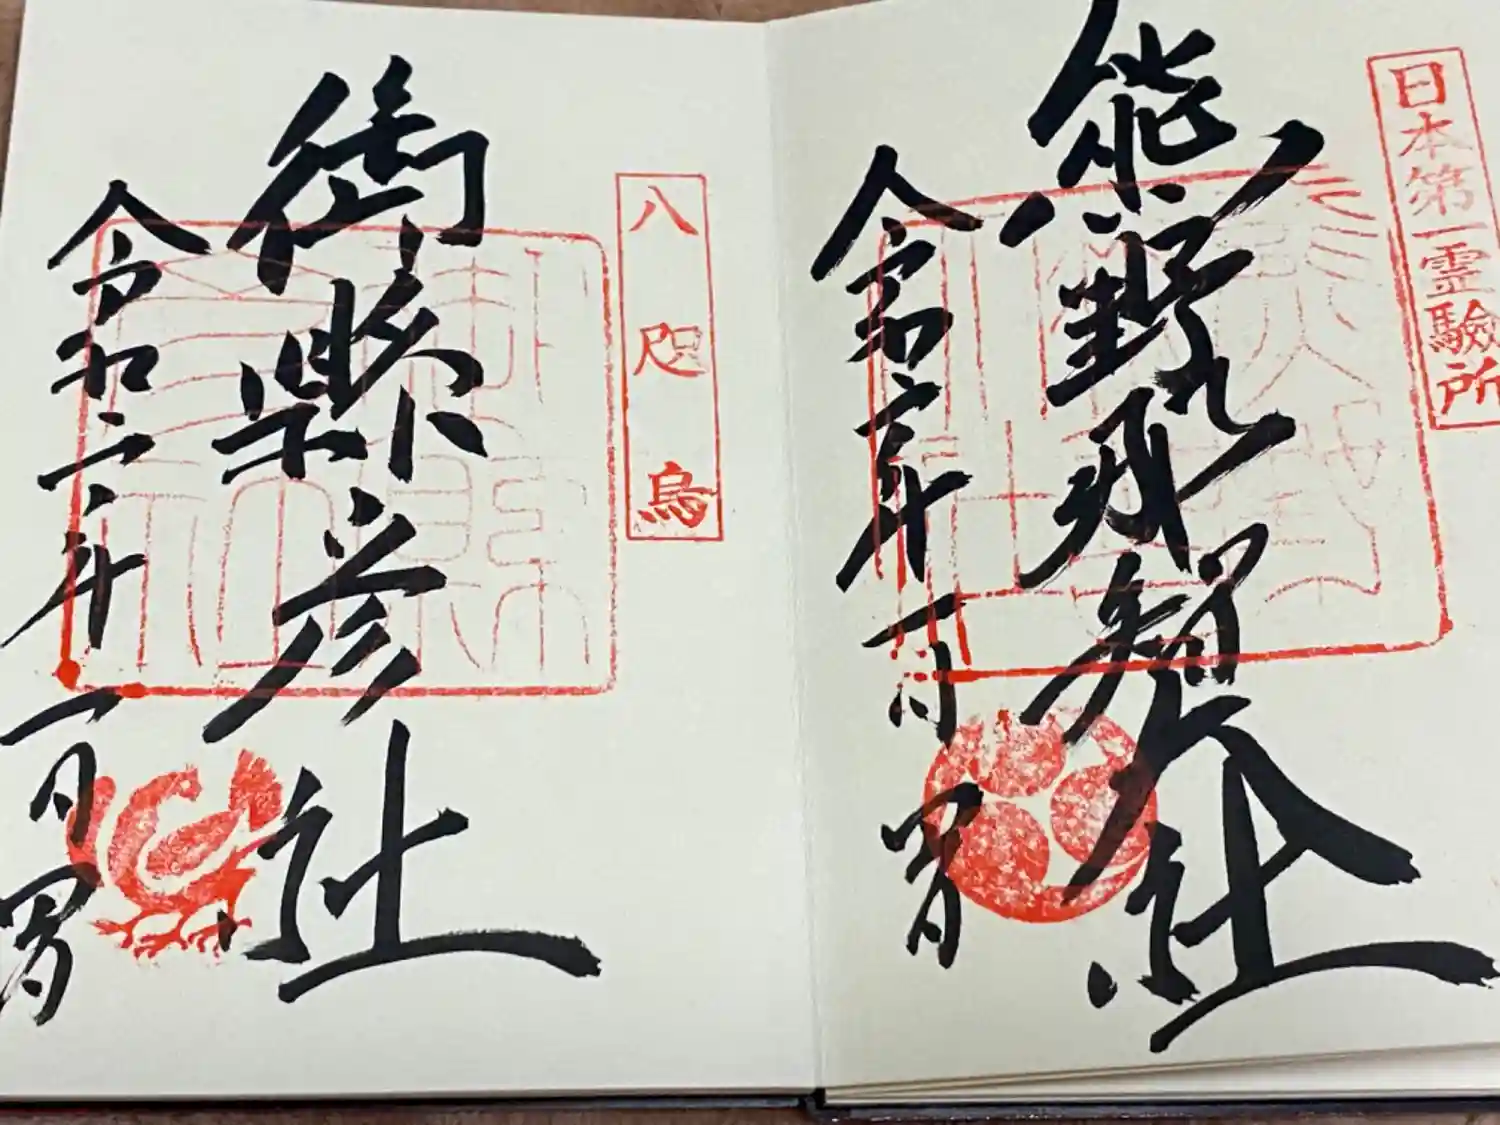 日本第一霊驗所
熊野那智大社
令和二年一月四日
八咫烏
御縣彦社
令和二年一月四日